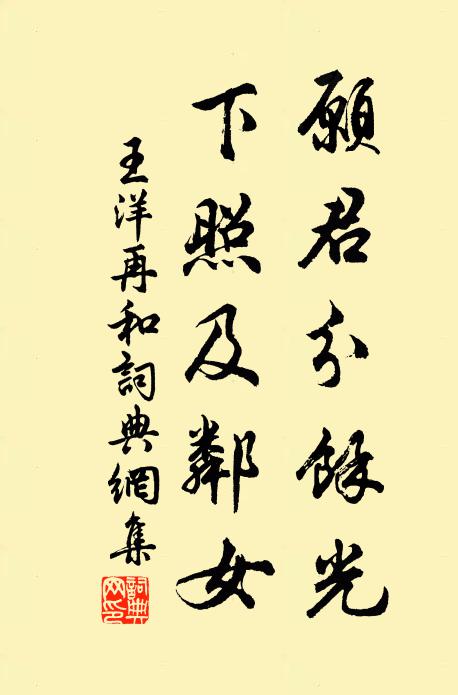 願君分餘光
下照及鄰女
王洋再和詞典網集
詞典
網印